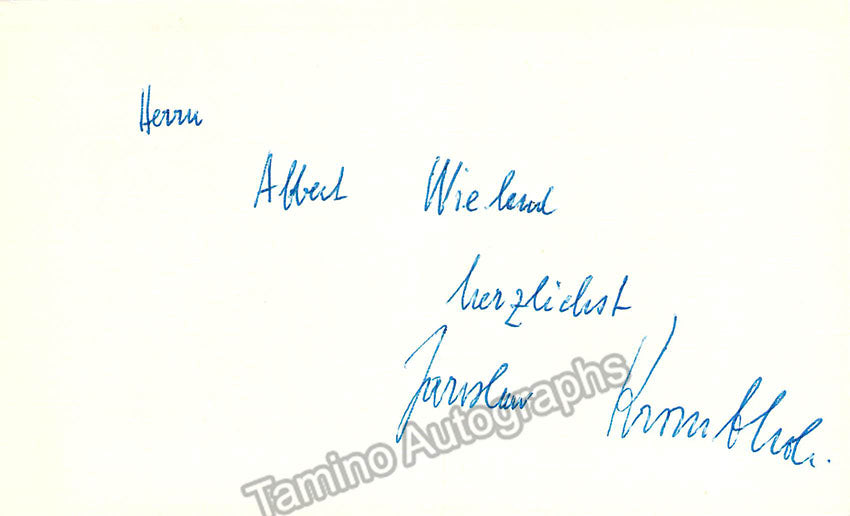 Herrn
Albert Wieland
herzlichst
Jaroslav Krombholc.
Tamino Autographs